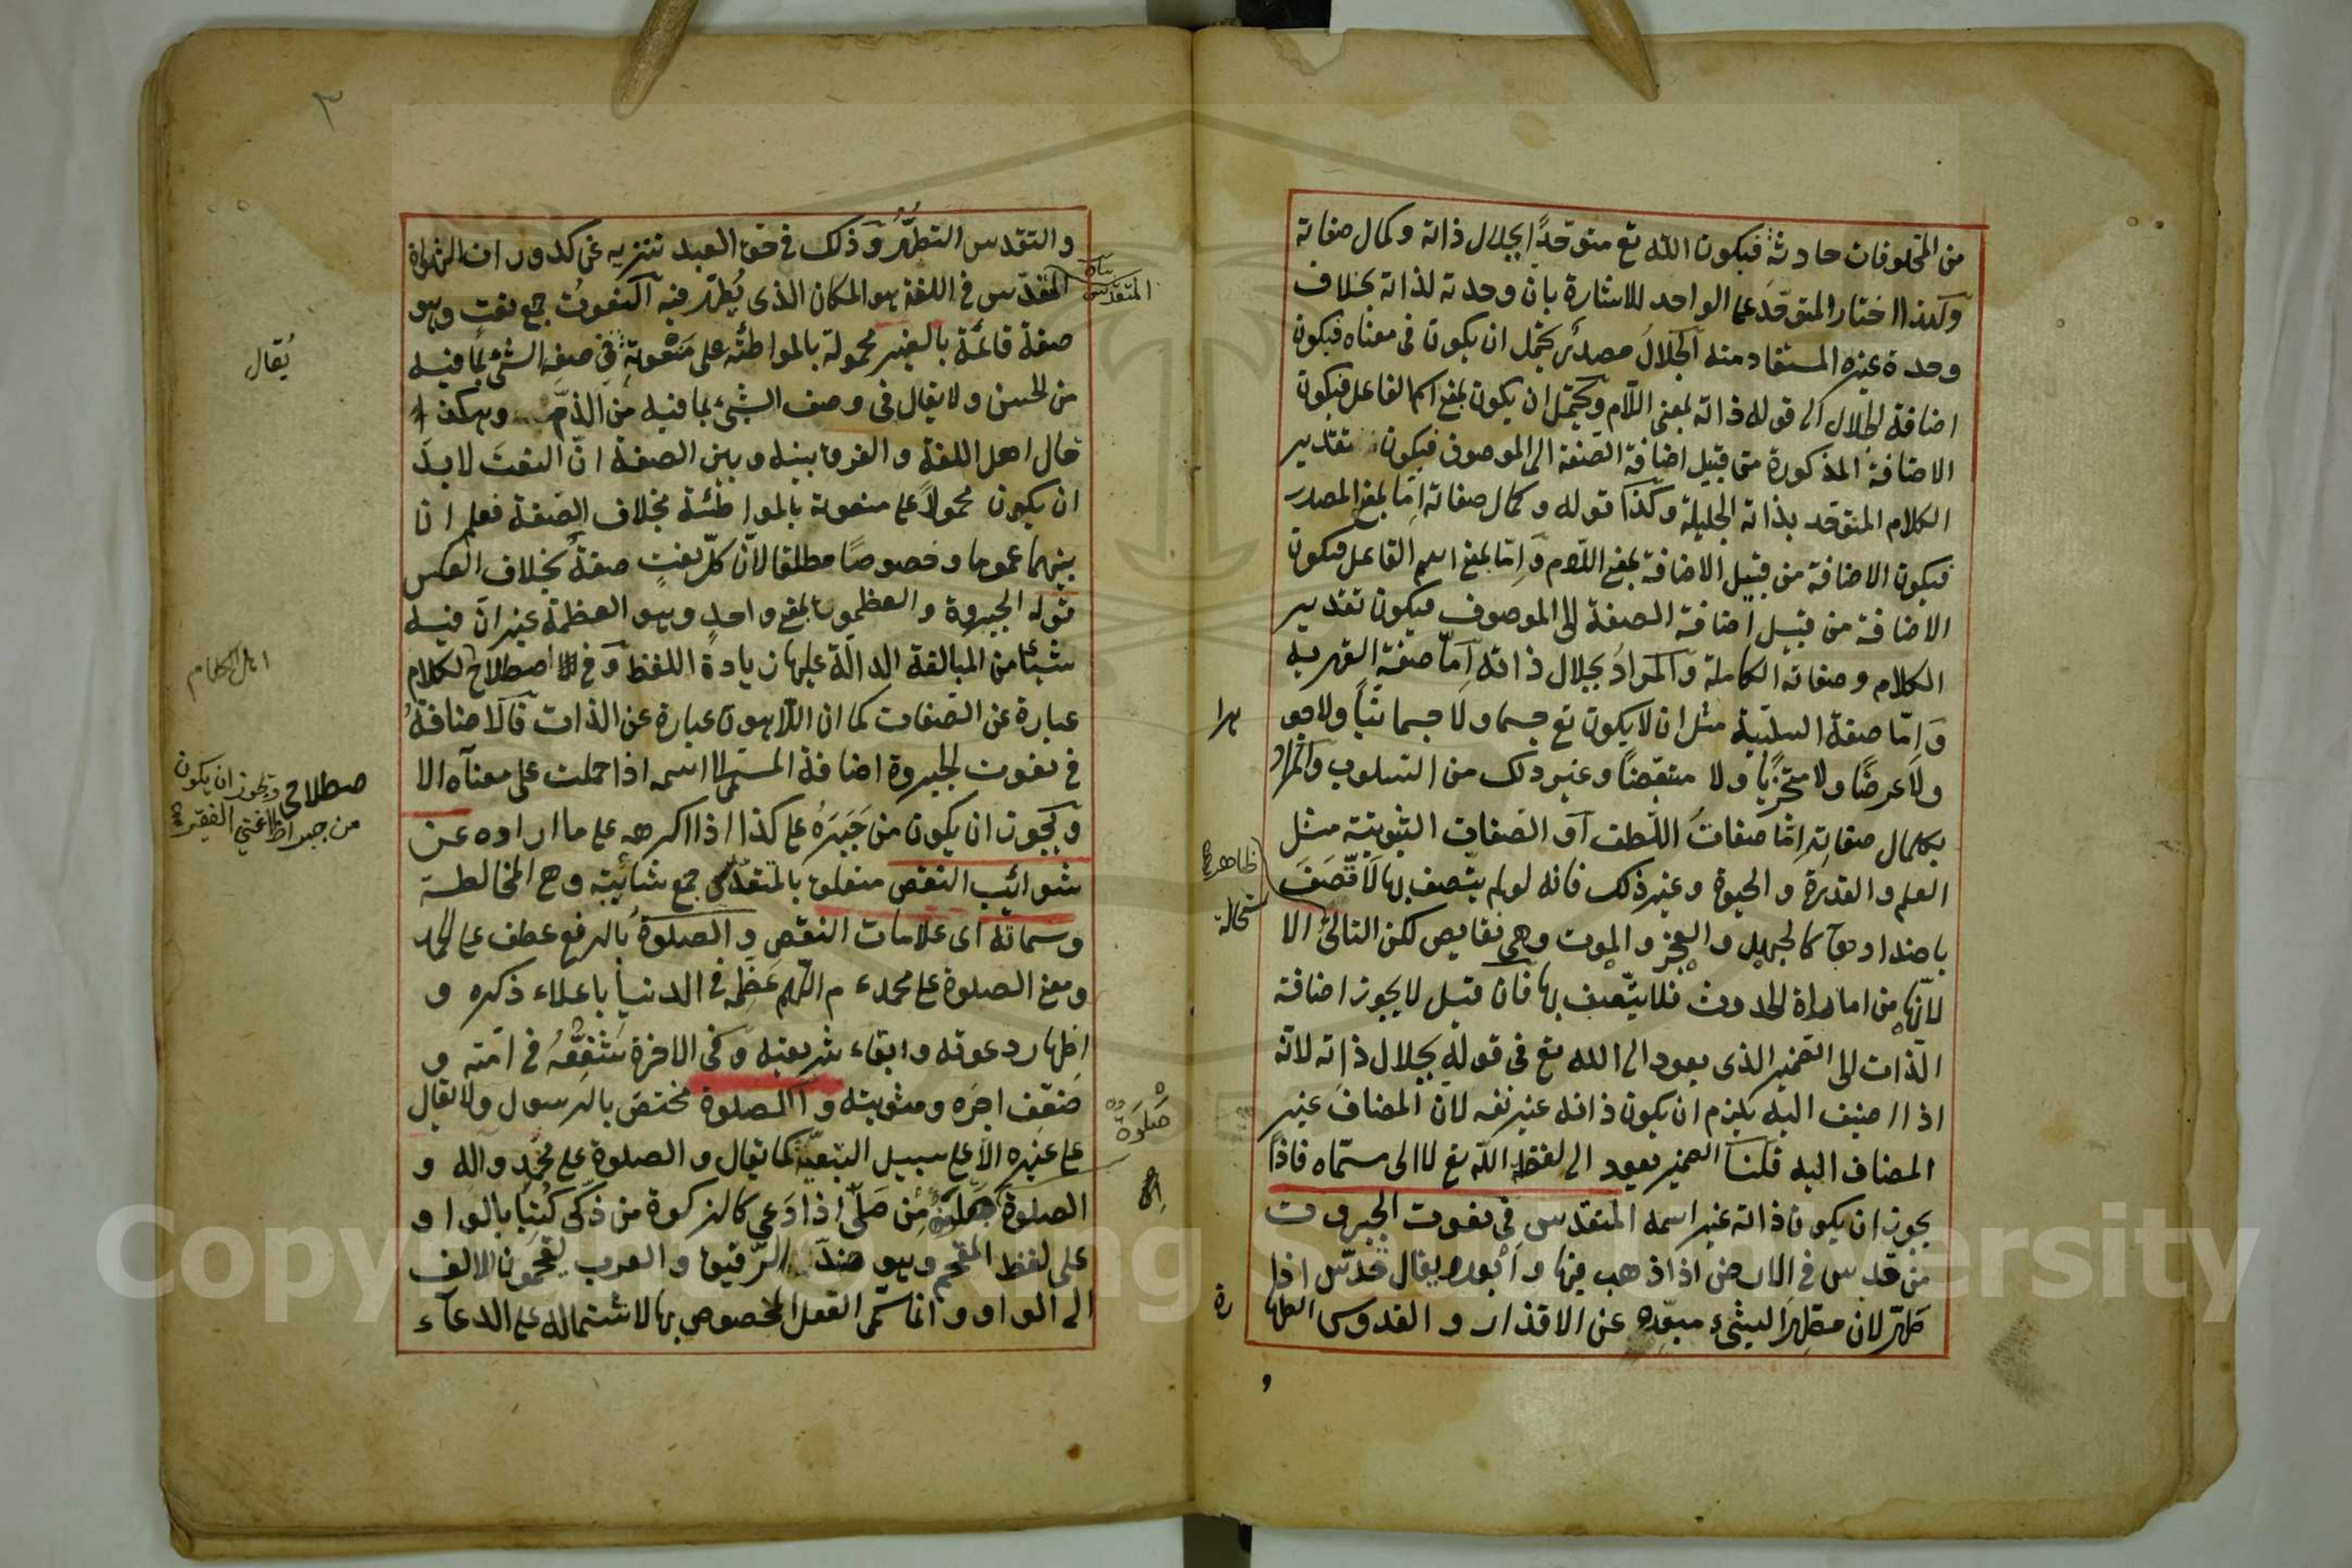 من المخلوقات حادثة فيكون الله تع متوحدا بجلال ذاته وكمال صفاته
ولهذا اختار المتوحد على الواحد للاشارة بان وحدته لذاته بخلاف
وحدة غيره المستفاد منه الجلال مصدر يحتمل ان يكون فى معناه فيكون
اضافة الجلال الى قوله ذاته بمعنى اللام ويحتمل ان يكون بمعنى اسم الفاعل فيكون
الاضافة المذكورة من قبيل اضافة الصفة الى الموصوف فيكون تقدير
الكلام المتوحد بذاته الجليلة وكذا قوله وكمال صفاته اما بمعنى المصدر
فيكون الاضافة من قبيل الاضافة بمعنى اللام واما بمعنى اسم الفاعل فيكون
الاضافة من قبيل اضافة الصفة الى الموصوف فيكون تقدير
الكلام وصفاته الكاملة والمراد بجلال ذاته اما صفة القهرية
واما صفة السلبية مثل ان لا يكون تع جسما ولا جسمانيا ولا جو
هرا
ولا عرضا ولا متحزيا ولا متبعضا وغير ذلك من السلوب والمراد
بكمال صفاته اما صفات اللطف او الصفات الثبوتية مثل
العلم والقدرة والحيوة وغير ذلك فانه لو لم يتصف بها لاتصف
ظاهر
باضدادها كالجهل والعجز والموت وهى نقايص لكن التالى الا
ستحالة
لانها من اماراة الحدوث فلا يتصف بها فان قيل لا يجوز اضافة
الذات الى الضمير الذى يعود الى الله تع فى قوله بجلال ذاته لانه
اذا اضيف اليه يلزم ان يكون ذاته غير نفسه لان المضاف غير
المضاف اليه قلنا الضمير يعود الى لفظة الله تع لا الى مسماه فاذا
يجوز ان يكون ذاته غير اسمه المتقدس فى نعوت الجبروت
من قدس فى الارض اذا ذهب فيها وابعد ويقال قدس اذا
طهر لان مطهر الشىء مبعده عن الاقذار والقدوس الطها
رة
و
٣
والتقدس التطهر وذلك فى حق العبد تنزيه عن كدورات الشهواة
المقدس فى اللغة هو المكان الذى يطهر فيه النعوت جمع نعت وهو
المتقدس
صفة قائمة بالغير محمولة بالمواطئه على منعوته فى صفة الشئ بما فيه
يقال
من الحسن ولا يقال فى وصف الشىء بما فيه من الذم وهكذا
قال اهل اللغة والفرق بينه وبين الصفة ان النعت لا بد
ان يكون محمولا على منعوته بالمواطئة بخلاف الصفة فعلم ان
بينهما عموما وخصوصا مطلقا لان كل نعت صفة بخلاف العكس
قوله الجبروة والعظموت بمعنى واحد وهو العظمة غير ان فيه
شيئا من المبالغة الدالة عليها زيادة اللفظ وفى اصطلاح الكلام
اهل الكلام
عبارة عن الصفات كما ان اللاهوت عبارة عن الذات فالاضافة
فى نعوت الجبروة اضافة المسمى الى اسمه اذا حملت على معناه الا
صطلاحى ويجوز ان يكون
من جبر اذا اغنى الفقير
ويجوز ان يكون من جبره على كذا اذا اكرهه على ما اراده عن
شوائب النقص متعلق بالمتقدس جمع شائبة وهى المخالطة
وسماته اى علامات النقص والصلوة بالرفع عطف على الحمد
ومعنى الصلوة على محمد ع م اللهم عظمه فى الدنيا باعلاء ذكره و
اظهار دعوته وابقاء شريعته وفى الاخرة شفعه فى امته و
ضعف اجره ومثوبته والصلوة مختص بالرسول ولا يقال
على غيره الا على سبيل التبعية كما يقال والصلوة على محمد وآله و
صلوة
الصلوة من صلى اذا دعى كالزكوة من ذكى كتبتا بالواو
على لفظ المفخم وهو ضد الرقيق والعرب يفخمون الالف
الى الواو وانما سمى الفعل المخصوص بها لاشتماله على الدعاء
Copyright © King Saud University